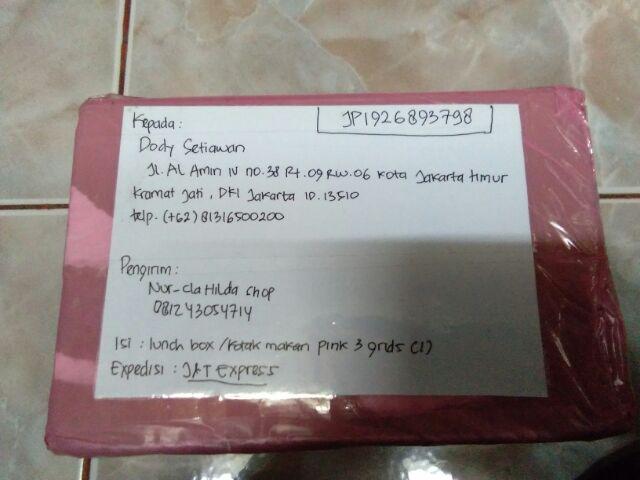 Kepada :
JP1926893798
Dody Setiawan
Jl. AL Amin IV no.38 Rt.09 Rw.06 Kota Jakarta timur
Kramat Jati, DKI Jakarta ID.13510
telp. (+62) 81316500200
Pengirim :
Nur-cla Hilda shop
081243054714
Isi : lunch box /Kotak makan pink 3 grids (1)
Expedisi : J&T Express